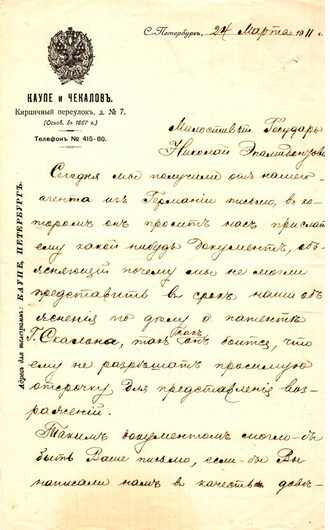 С.-Петербургъ, 24 Марта 1911 г.
КАУПЕ и ЧЕКАЛОВЪ.
Кирпичный переулокъ, д. № 7.
(Основ. въ 1867 г.)
Телефонъ № 415-80.
Адресъ для телеграммъ: КАУПЕ, ПЕТЕРБУРГЪ.
Милостивый Государь
Николай
Сегодня мы получили отъ нашего
агента изъ Германіи письмо, въ ко-
торомъ онъ проситъ насъ прислать
ему какой нибудь документъ, объ-
ясняющій почему мы не могли
представить въ срокъ наши объ
ясненія по дѣлу о патентѣ
Г. Скальона, такъ какъ онъ боится, что
ему не разрѣшатъ просимую
отсрочку для представленія воз-
раженій.
Такимъ документомъ могло-бы
быть Ваше письмо, если-бы Вы
написали намъ въ качествѣ довѣ-